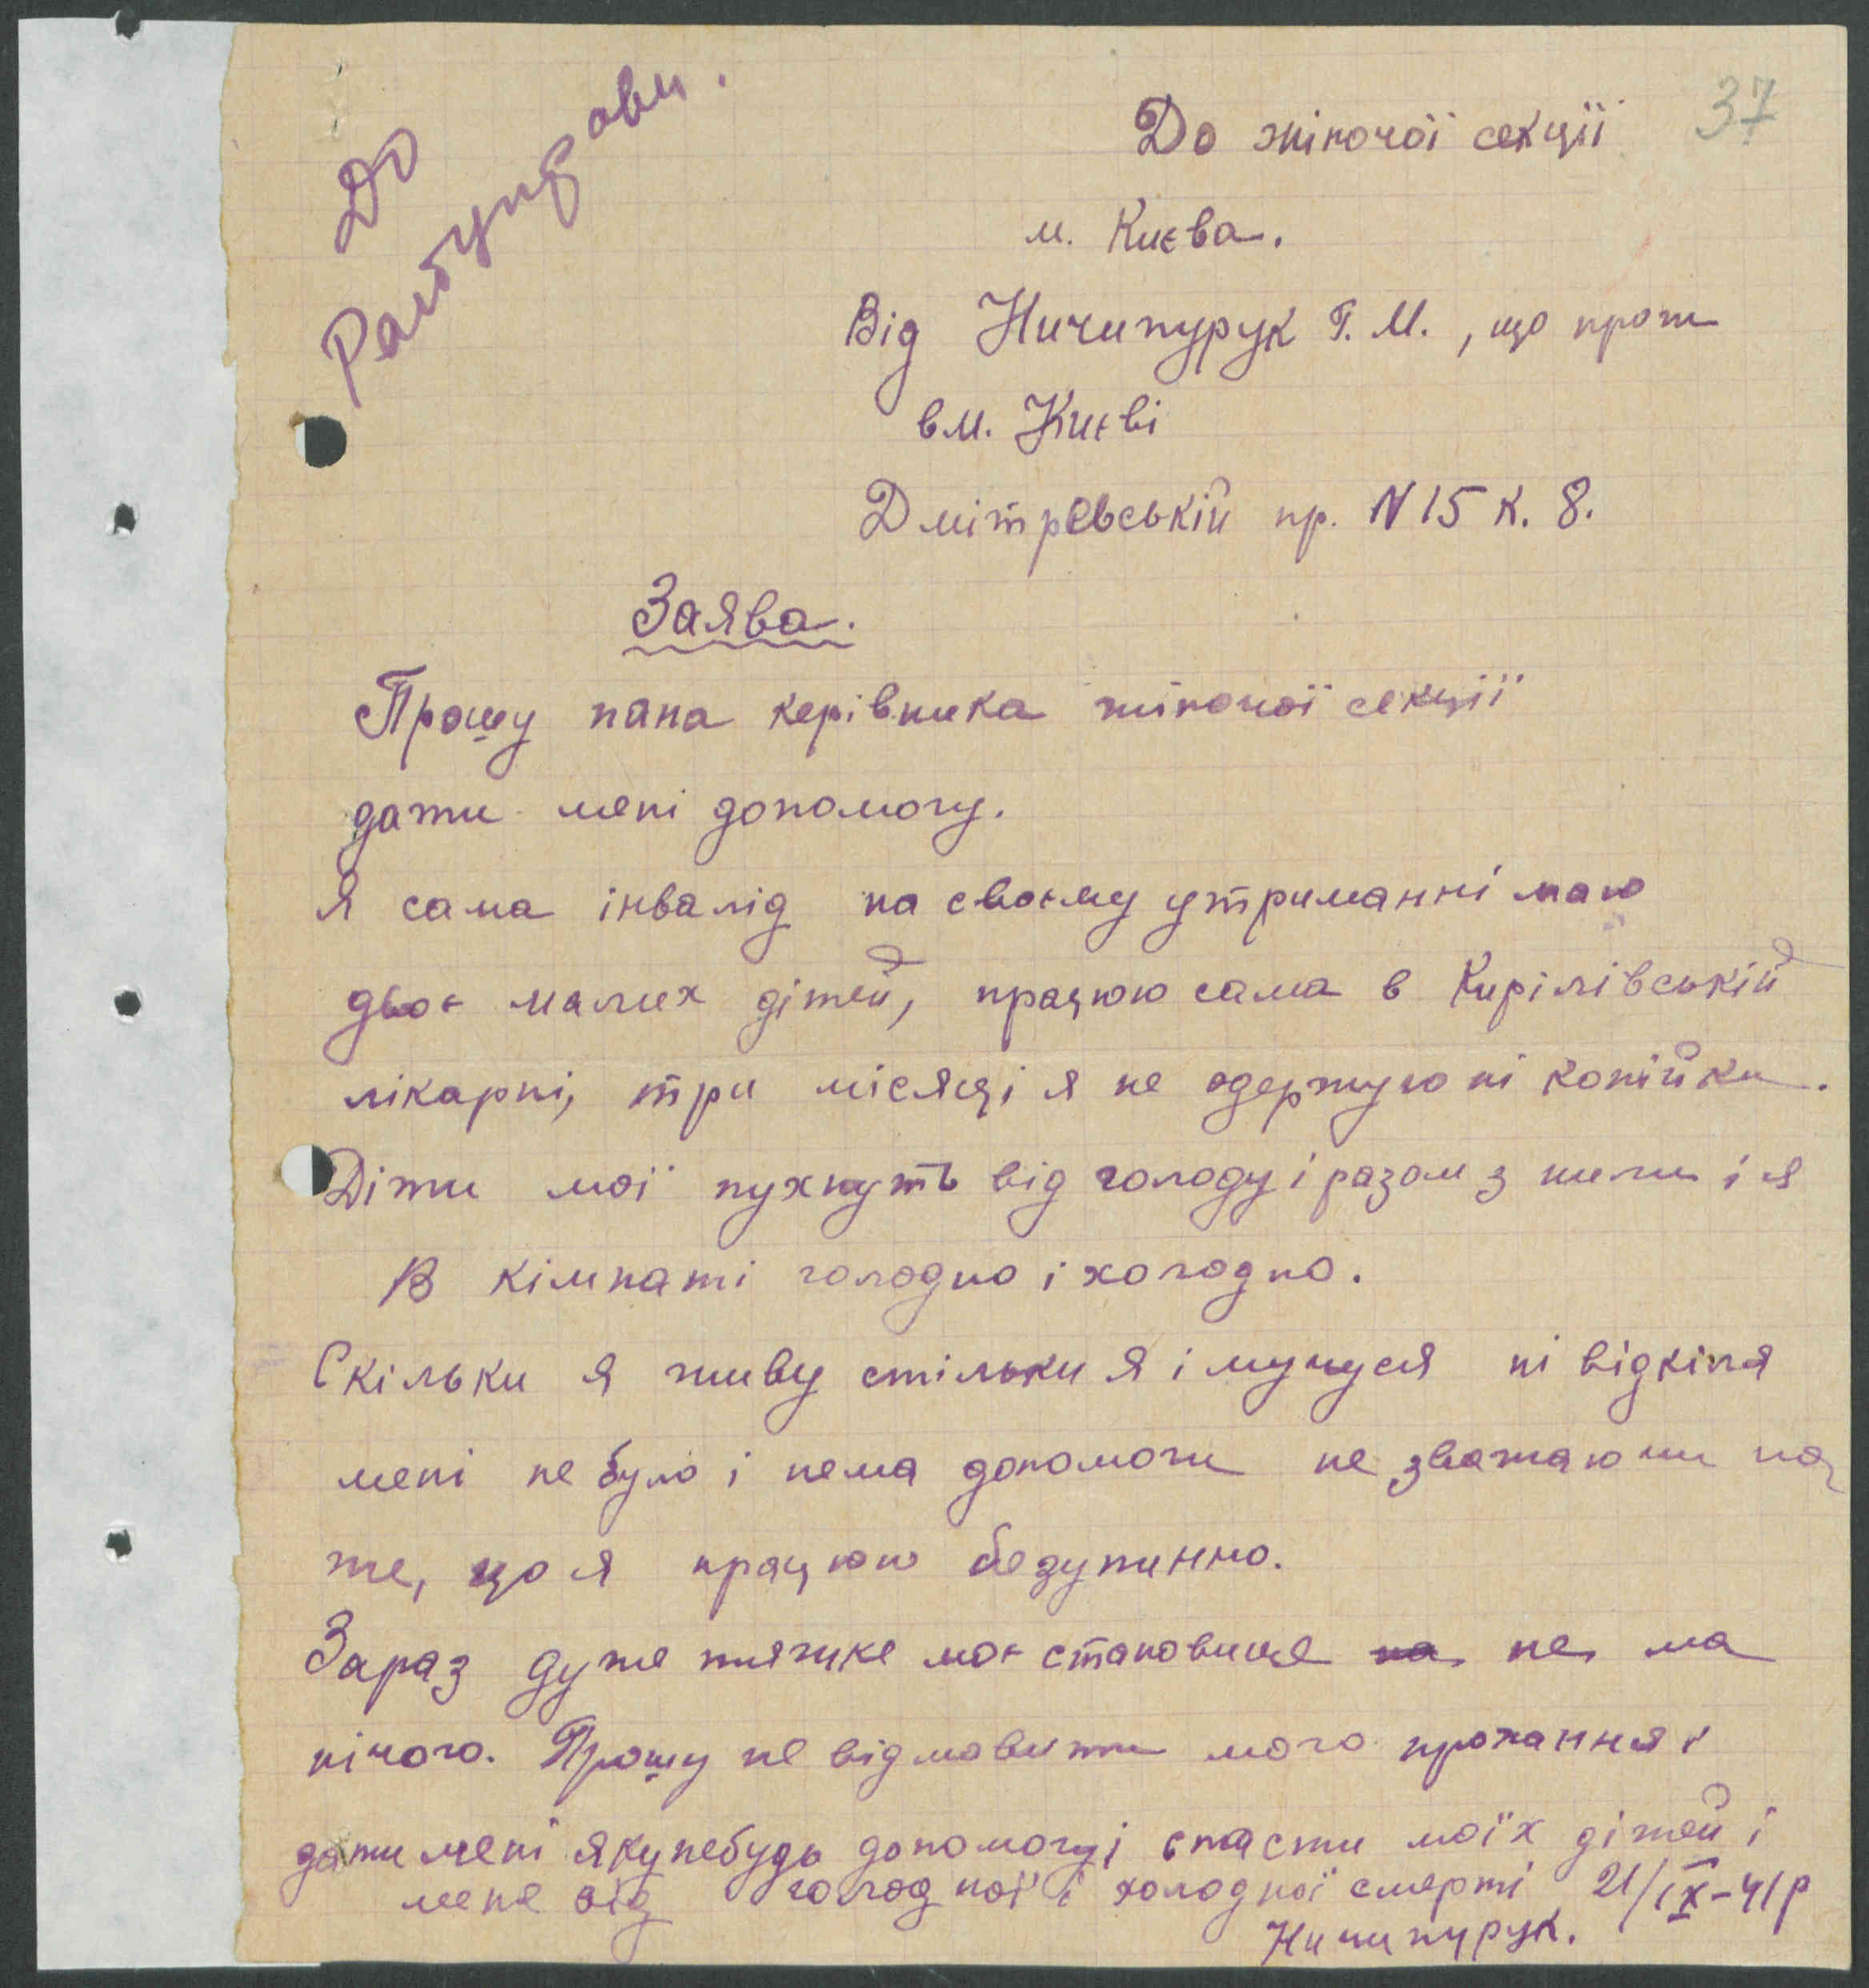 37
До
Райуправи.
До жіночої секції
м. Києва.
Від Ничипурук Г. М., що прож
в м. Києві
Дмітревській пр. N 15 к. 8.
Заява.
Прошу пана керівника жіночої секції
дати мені допомогу.
Я сама інвалід на своєму утриманні маю
двоє малих дітей, працюю сама в Кирілівській
лікарні, три місяці я не одержую ні копійки.
Діти мої пухнуть від голоду і разом з ними і я
В кімнаті голодно і холодно.
Скільки я живу стільки я і мучуся ні відкіля
мені не було і нема допомоги не зважаючи на
те, що я працюю безупинно.
Зараз дуже тяжке моє становище на не ма
нічого. Прошу не відмовити мого прохання і
дати мені якунебудь допомогу і спасти моїх дітей і
мене від голодної і холодної смерті 21/IX-41р
Ничипурук.